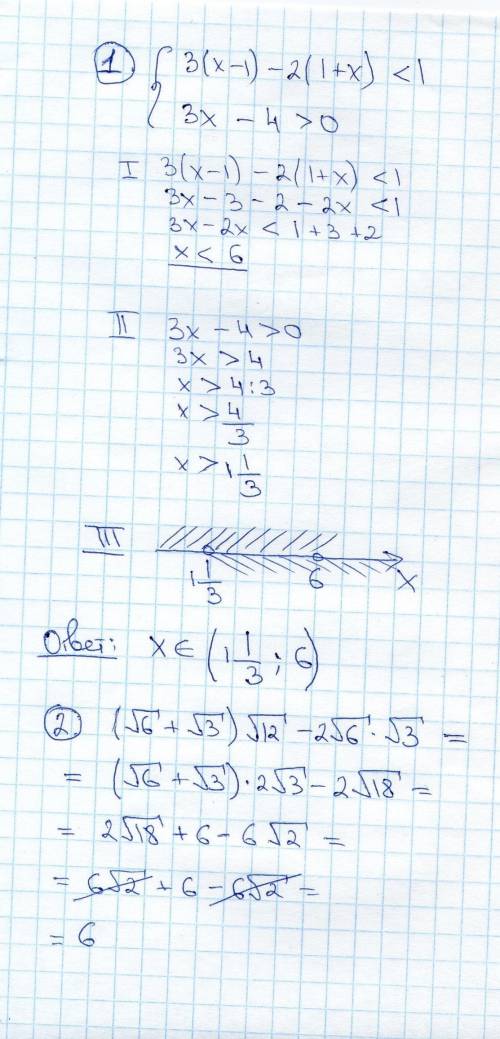 1 { 3(x-1) - 2(1+x) < 1
3x - 4 > 0
I 3(x-1) - 2(1+x) < 1
3x - 3 - 2 - 2x < 1
3x - 2x < 1 + 3 + 2
x < 6
II 3x - 4 > 0
3x > 4
x > 4 : 3
x > 4/3
x > 1 1/3
III
1 1/3 6 x
Ответ: x ∈ (1 1/3 ; 6)
2. (√6 + √3) √12 - 2√6 · √3 =
= (√6 + √3) · 2√3 - 2√18 =
= 2√18 + 6 - 6√2 =
= 6√2 + 6 - 6√2 =
= 6